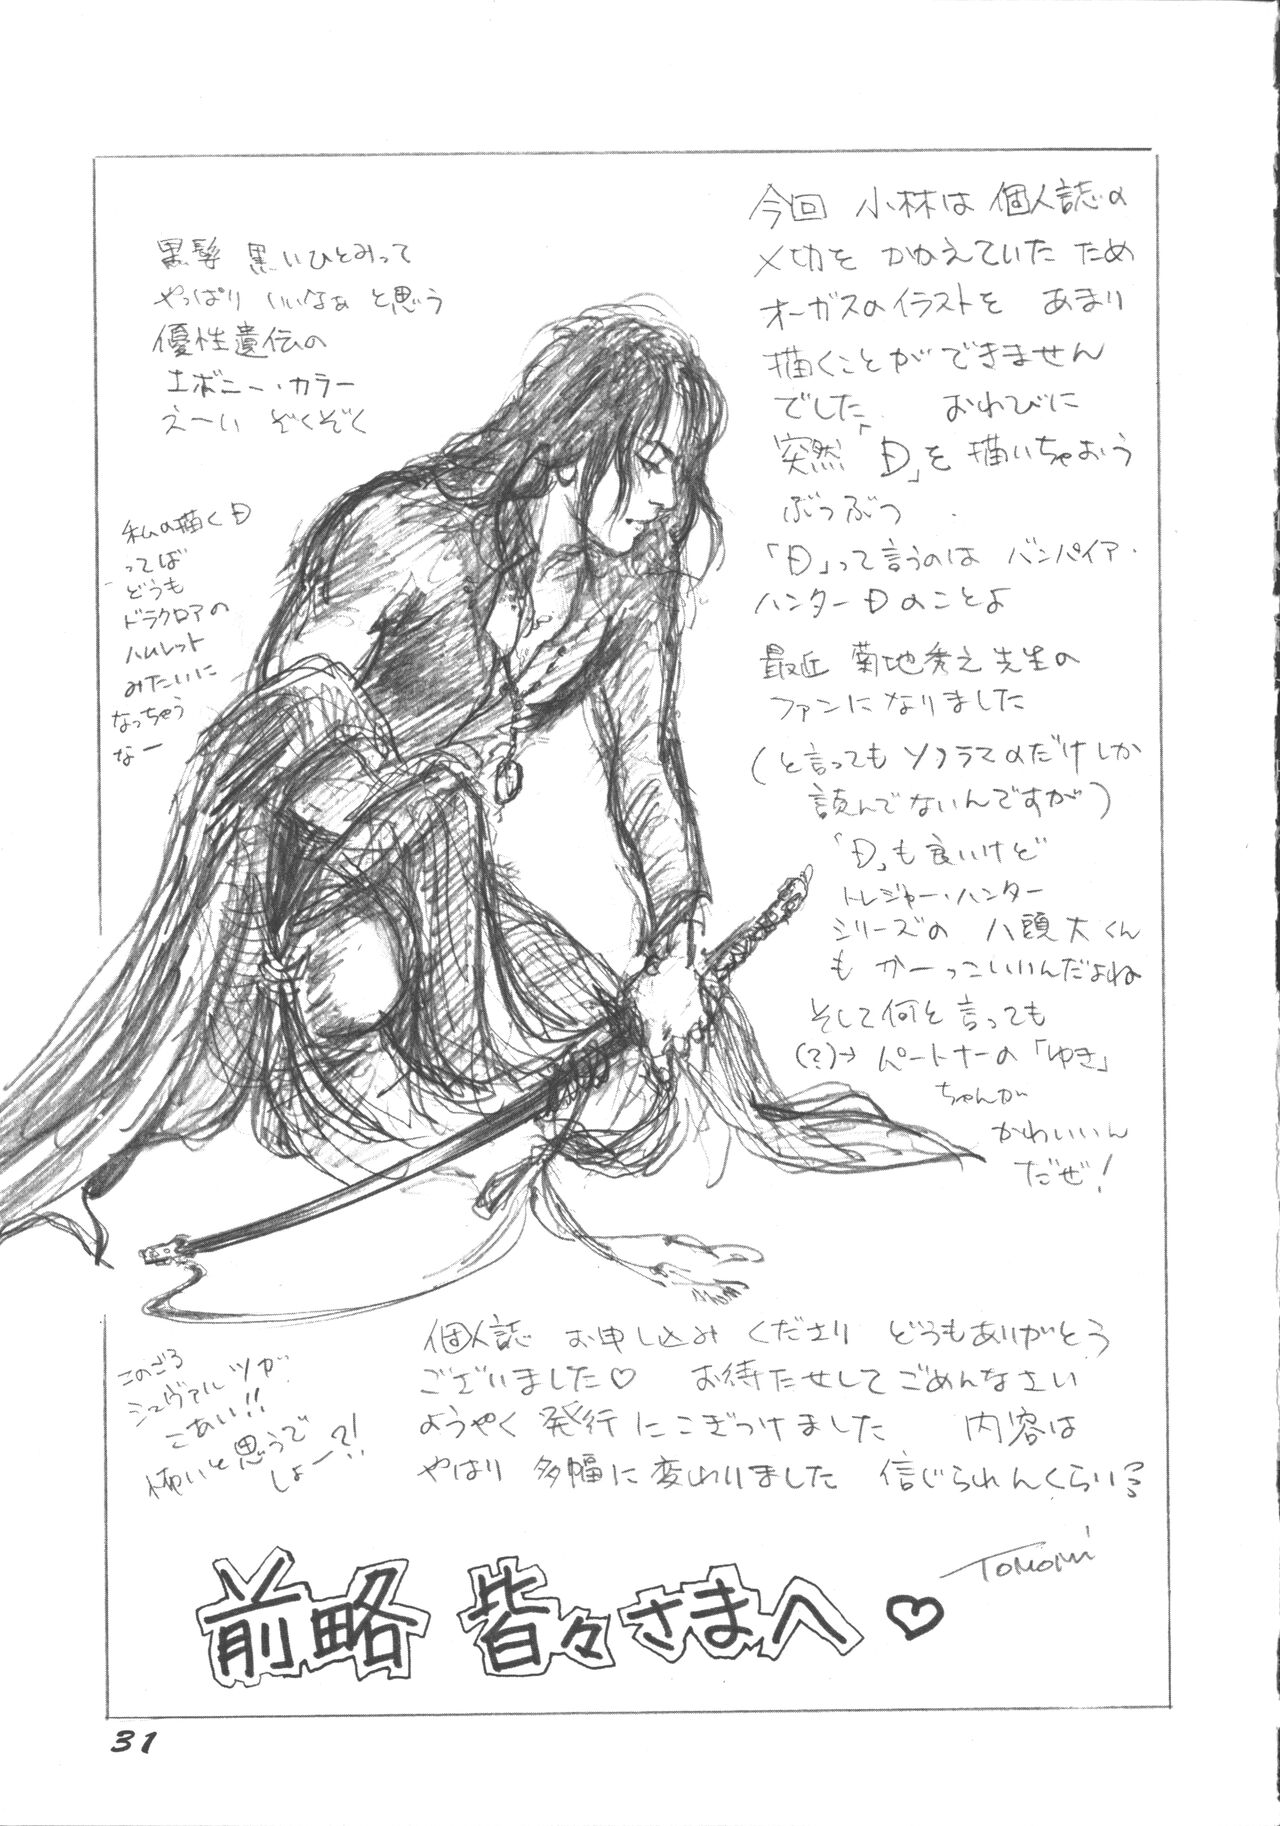 今回 小林は 個人誌の
〆切を かかえていた ため
オーガスのイラストを あまり
描くことができません
でした おわびに
突然「D」を 描いちゃおう
ぶつぶつ
「D」って言うのは バンパイア・
ハンターDのことよ
最近 菊地秀之先生の
ファンになりました
(と言っても ソノラマのだけしか
読んでないんですが)
「D」も良いけど
トレジャー・ハンター
シリーズの 八頭大くん
も かーっこいいんだよね
そして何と言っても
(?)→ パートナーの「ゆき」
ちゃんが
かわいいん
だぜ!
黒髪 黒いひとみって
やっぱり いいなぁ と思う
優性遺伝の
エボニー・カラー
えーい ぞくぞく
私の描くD
ってば
どうも
ドラクロアの
ハムレット
みたいに
なっちゃう
なー
個人誌 お申し込み くださり どうもありがとう
ございました♡ お待たせして ごめんなさい
ようやく 発行に こぎつけました 内容は
やはり 多幅に 変わりました 信じられんくらい?
このごろ
シュヴァルツが
こあい!!
怖いと思うで
しょー?!
Tomomi
前略 皆々さまへ ♡
31